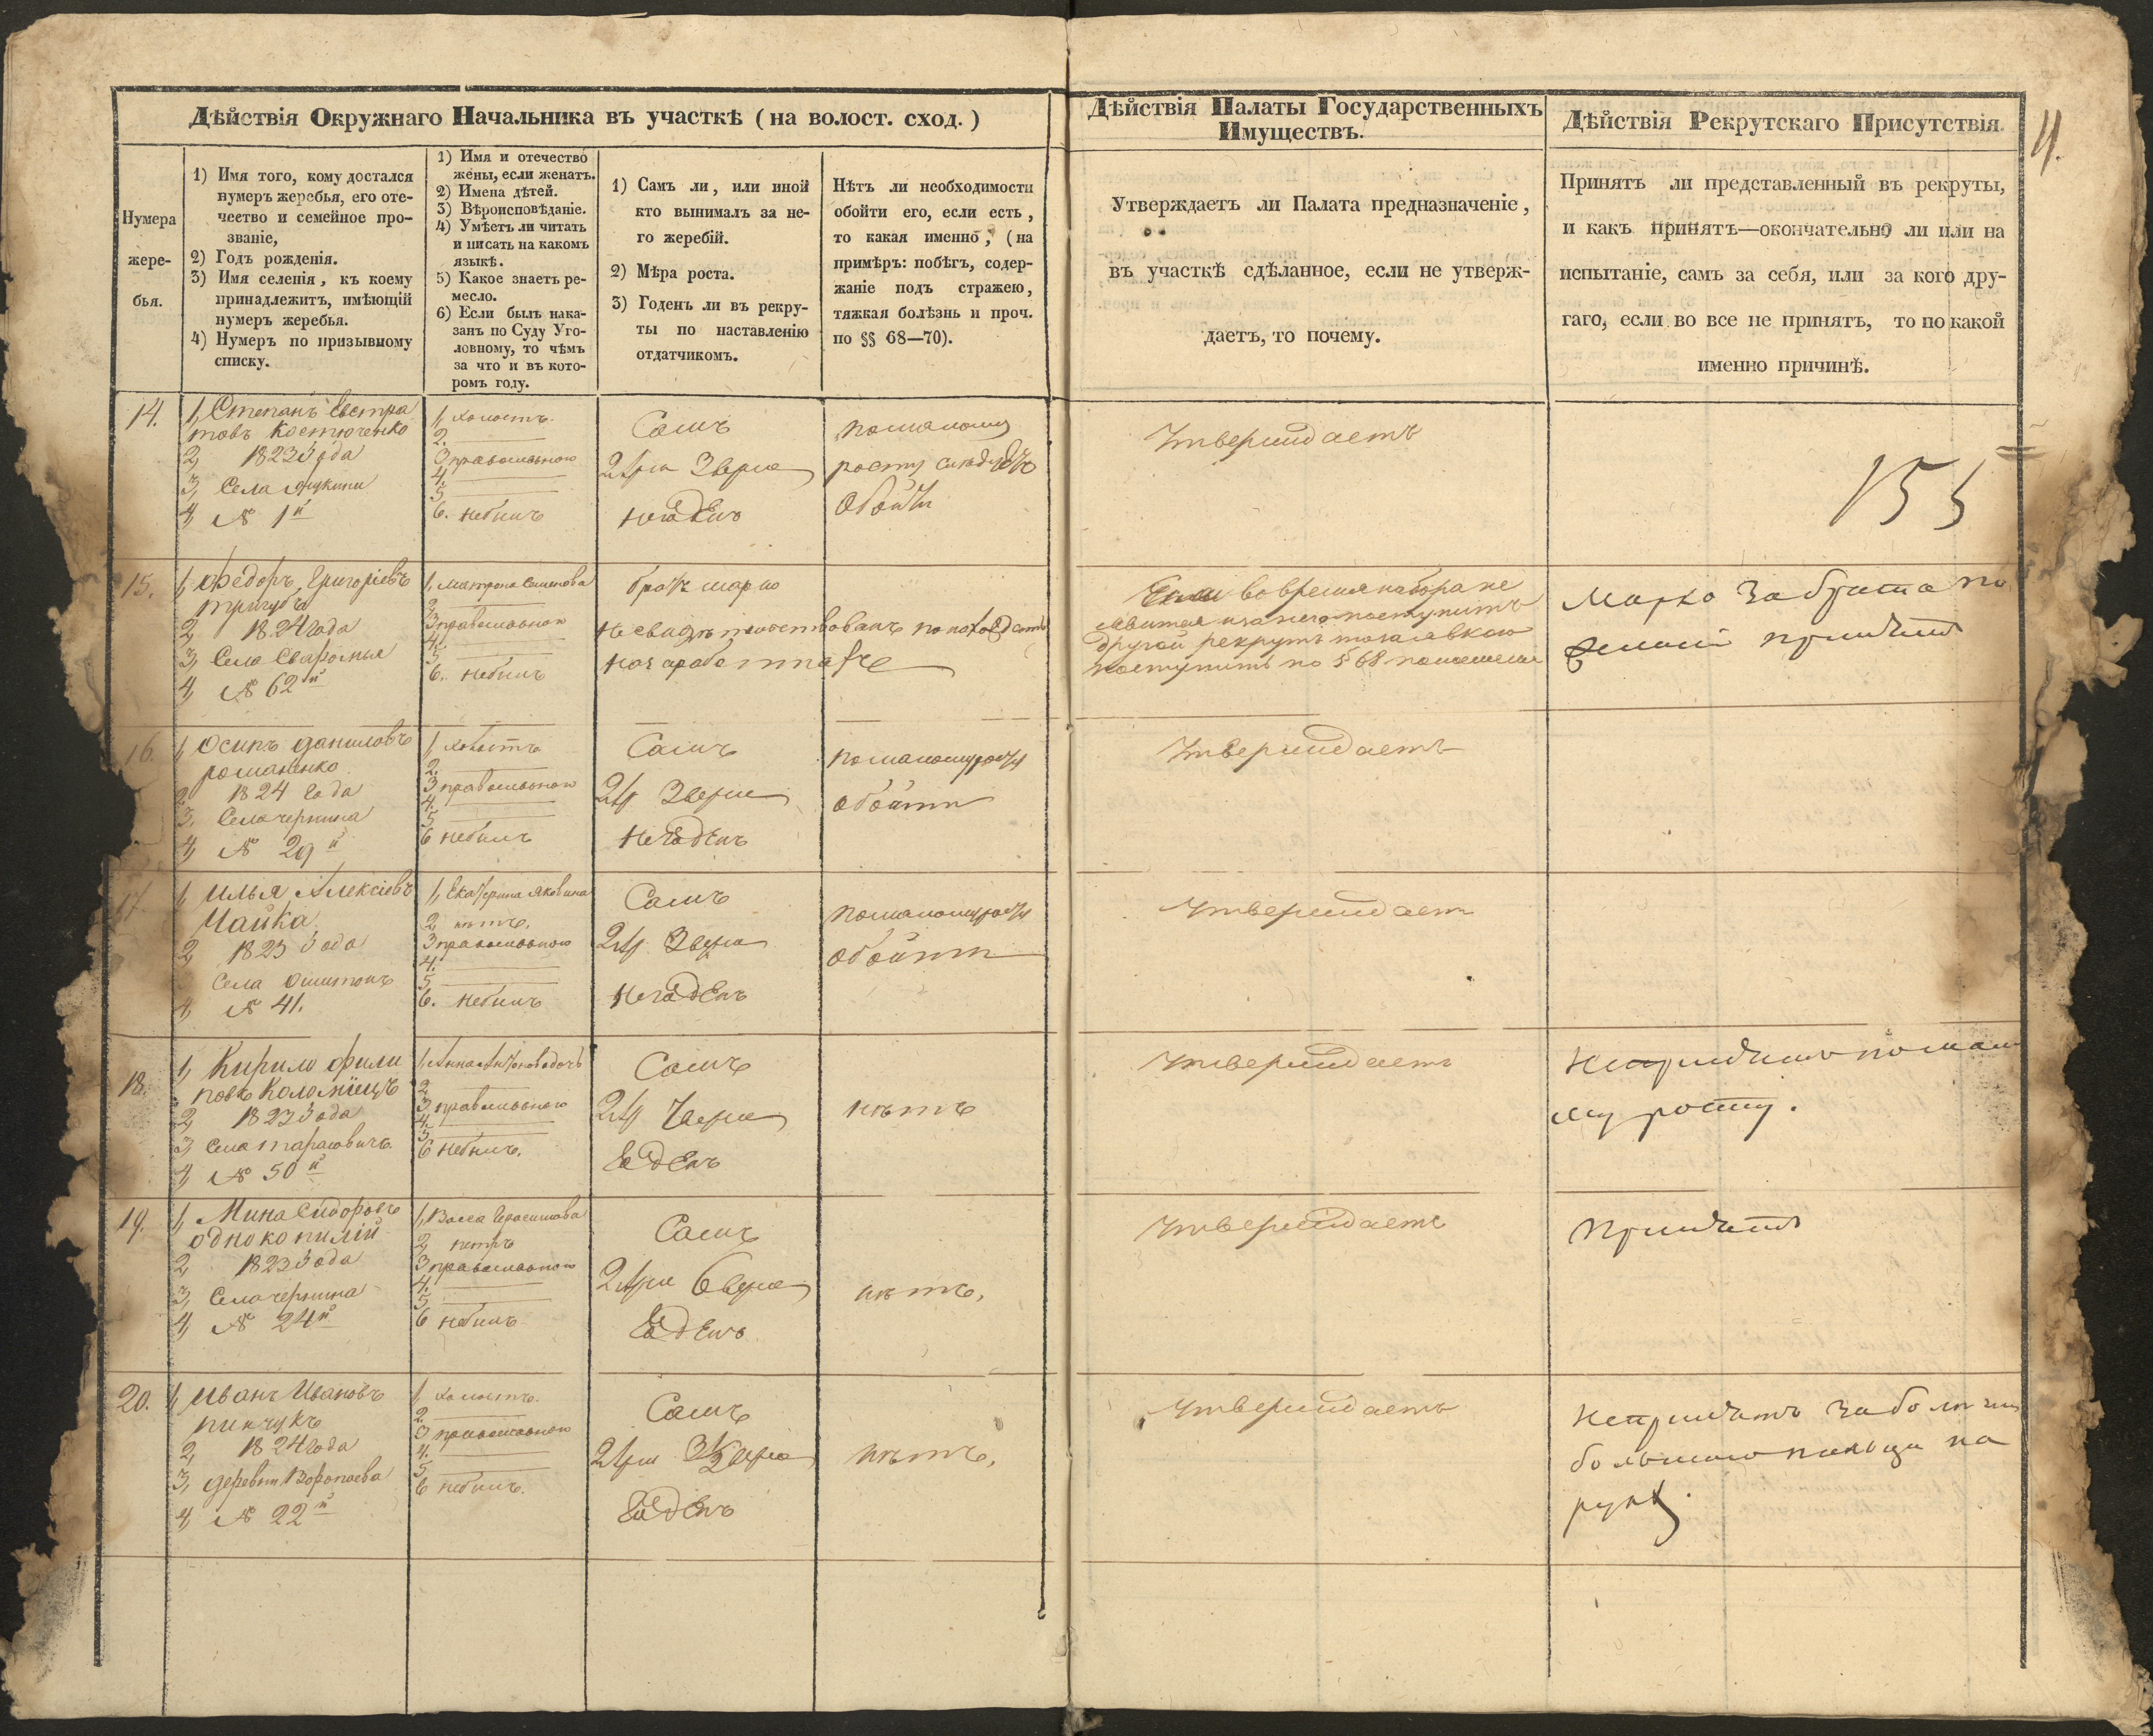 Дѣйствія Окружнаго Начальника въ участкѣ (на волост. сход.)
Нумера
жере-
бья.
1) Имя того, кому достался
нумеръ жеребья, его оте-
чество и семейное про-
званіе,
2) Годъ рожденія.
3) Имя селенія, къ коему
принадлежитъ, имѣющій
нумеръ жеребья.
4) Нумеръ по призывному
списку.
1) Имя и отечество
жены, если женатъ.
2) Имена дѣтей.
3) Вѣроисповѣданіе.
4) Умѣетъ ли читать
и писать на какомъ
языкѣ.
5) Какое знаетъ ре-
месло.
6) Если былъ нака-
занъ по Суду Уго-
ловному, то чѣмъ
за что и въ кото-
ромъ году.
1) Самъ ли, или иной
кто вынималъ за не-
го жеребій.
2) Мѣра роста.
3) Годенъ ли въ рекру-
ты по наставленію
отдатчикомъ.
Нѣтъ ли необходимости
обойти его, если есть,
то какая именно, (на
примѣръ: побѣгъ, содер-
жаніе подъ стражею,
тяжкая болѣзнь и проч.
по §§ 68—70).
Дѣйствія Палаты Государственныхъ
Имуществъ.
Утверждаетъ ли Палата предназначеніе,
въ участкѣ сдѣланное, если не утверж-
даетъ, то почему.
Дѣйствія Рекрутскаго Присутствія.
Принятъ ли представленный въ рекруты,
и какъ принятъ—окончательно ли или на
испытаніе, самъ за себя, или за кого дру-
гаго, если во все не принятъ, то по какой
именно причинѣ.
4.
14.
1, Степанъ Евстра
товъ Костюченко
2, 1823 года
3, Села
4, № 1й
1, холостъ.
2.
3 православного
4.
5
6. небылъ
Самъ
2 ар 3 верш
негоденъ
помалому
росту слѣдуетъ
обойти
Утверждаетъ
155
15.
1, Федоръ Григоріевъ
тригубъ
2, 1824 года
3, Села Сваромья
4, № 62й
1, Матрона Семенова
2
3 православного
4.
5
6. небылъ
братъ марко
несвидѣтельствованъ по
на заработкахъ
Если вовремя набора не
явится и за него поступитъ
другой рекрутъ то
поступить по § 68
Марко За брата по
принятъ
16.
1, Осипъ Даниловъ
романенко
2, 1824 года
3, Села чернина
4, № 29й
1, холостъ
2.
3 православного
4.
5
6 небылъ
Самъ
2 ар 3 верш
негоденъ
помалому росту
обойти
Утверждаетъ
17.
1, Илья Алексіевъ
Чайка
2, 1823 года
Села Ошитокъ
4, № 41.
1, Екатерина Яковлева
2, нѣтъ.
3 православного
4.
5
6. небылъ
Самъ
2 ар 3 верш
негоденъ
помалому росту
обойти
Утверждаетъ
18.
1, Кирило фили
повъ Коломіецъ
2, 1823 года
3, Села тарасовичъ
4, № 50й
1, Анна
2
3 православного
4.
5
6 небылъ.
Самъ
2 ар верш
годенъ
нѣтъ
Утверждаетъ
Непринятъ помало
му росту.
19.
1, Мина Сидоровъ
однокопилій
2, 1823 года
3, Села чернина
4, № 24й
1, Васса Герасимова
2, петръ
3 православного
4.
5
6 небылъ
Самъ
2 ар 6 верш
годенъ
нѣтъ,
Утверждаетъ
Принятъ
20.
1, Иванъ Ивановъ
пинчукъ
2, 1824 года
3, деревни Воропаева
4, № 22й
1, холостъ.
2
3 православного
4.
5
6 небылъ.
Самъ
2 ар 3½ верш
годенъ
нѣтъ,
Утверждаетъ
Непринятъ За
большого пальца на
рукѣ.